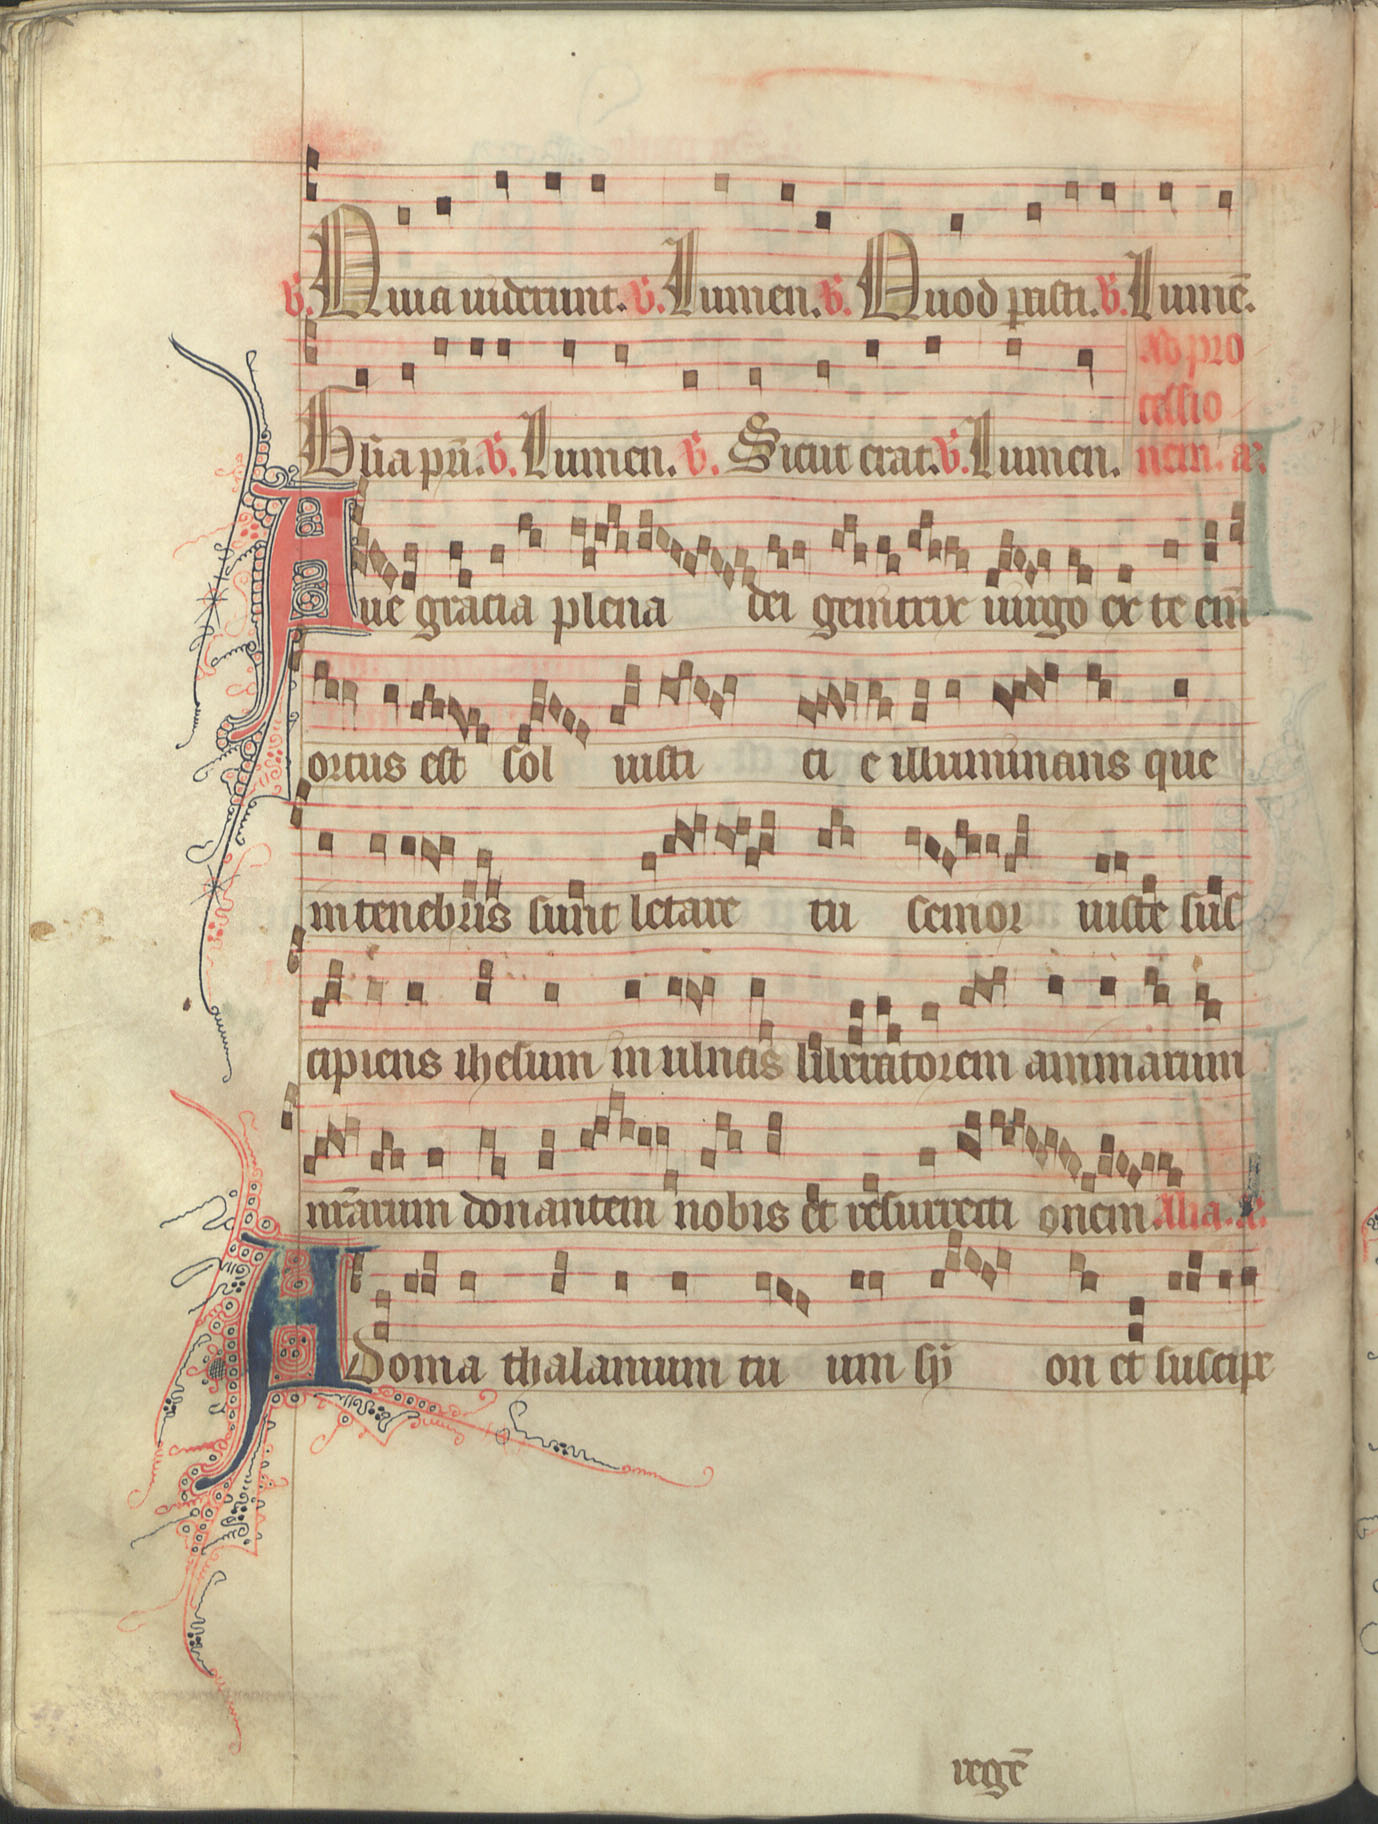 V. Quia viderunt. V. Lumen. V. Quod parasti. V. Lumē.
Glīa pr̄i. V. Lumen. V. Sicut erat. V. Lumen.
Ad pro
cessio
nem. a.
Aue gracia plena dei genitrix uirgo ex te eni̅
ortus est sol iusti ci e illuminans que
in tenebris sunt letare tu senior iuste sus
cipiens ihesum in ulnas liberatorem animarum
nr̄arum donantem nobis et resurrecti onem. Alia. a.
Adorna thalamum tu um syon et suscipe
regē